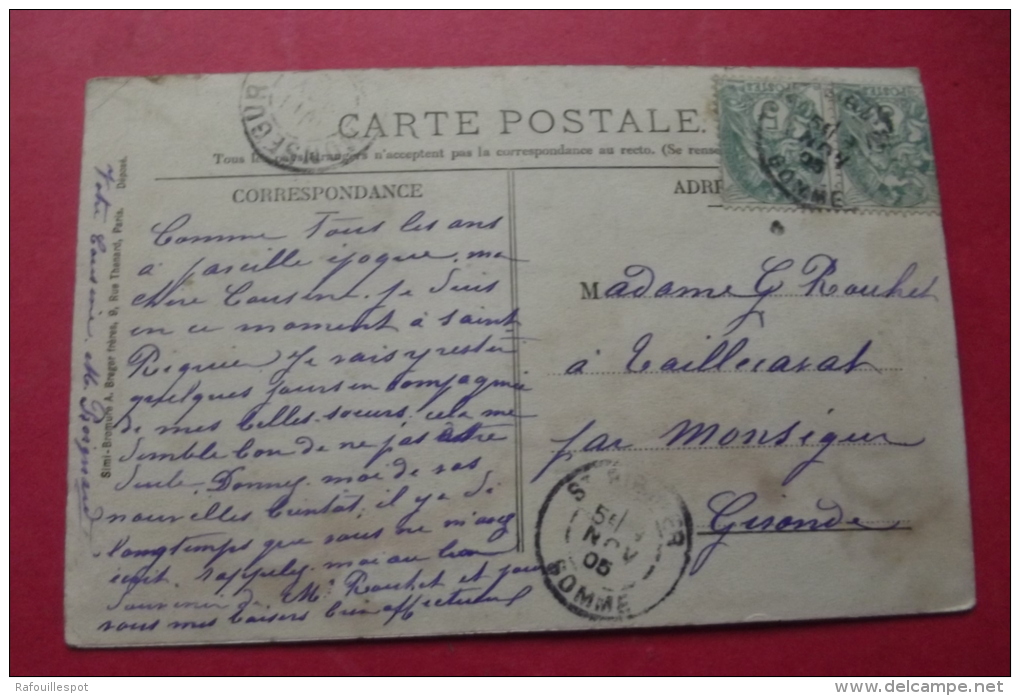 CARTE POSTALE.
Tous les pays étrangers n'acceptent pas la correspondance au recto. (Se rense
CORRESPONDANCE
ADR
Comme tous les ans
à pareille époque, ma
chère Cousine, je suis
en ce moment à Saint
Riquier. Je vais y rester
quelques jours en compagnie
de mes belles-soeurs, cela me
semble bon de ne pas être
seule. Donnez-moi de vos
nouvelles bientôt, il y a si
longtemps que vous ne m'avez
écrit, rappelez-moi au bon
souvenir de Mr Rouchet et pour
vous mes baisers bien affectueux
Votre Cousine M.
Simi-Bromure A. Breger frères, 9, Rue Thenard, Paris. Déposé.
Madame G Rouchet
à Taillecavat
par Monségur
Gironde
NOV
05
SOMME
5
NOV
05
SOMME
MONSEGUR
Rafouillespot
delcampe.net